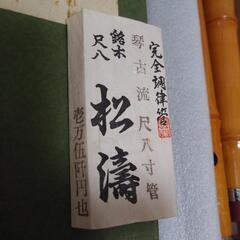 完全調律管
琴古流尺八寸管
銘木
尺八
松濤
壱万伍阡円也